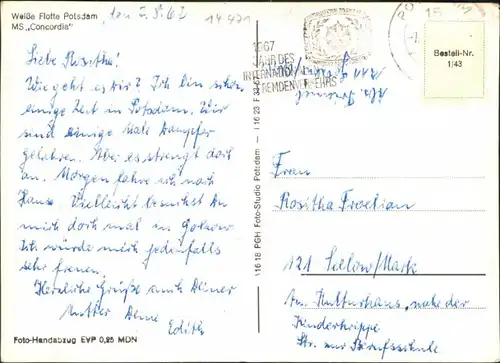 Weiße Flotte Potsdam
MS „Concordia"
den 5.5.67
14471
Liebe Rositha!
Wie geht es Dir? Ich bin schon
einige Zeit in Potsdam. Wir
sind einige Male Dampfer
gefahren. Aber es strengt doch
an. Morgen fahre ich nach
Hause. Vielleicht besuchst Du
mich doch mal in Golzow
Ich würde mich jedenfalls
sehr freuen.
Herzliche Grüße auch Deiner
Mutter Deine Edith
Foto-Handabzug EVP 0,25 MDN
I 16 18 PGH Foto-Studio Potsdam — I 16 23 F
1967
JAHR DES
INTERNATIONALEN
FREMDENVERKEHRS
15
Bestell-Nr.
1/43
Frau
Rositha
121 Seelow/Mark
Am Kulturhaus, nahe der
Kinderkrippe
Str. zur Berufsschule